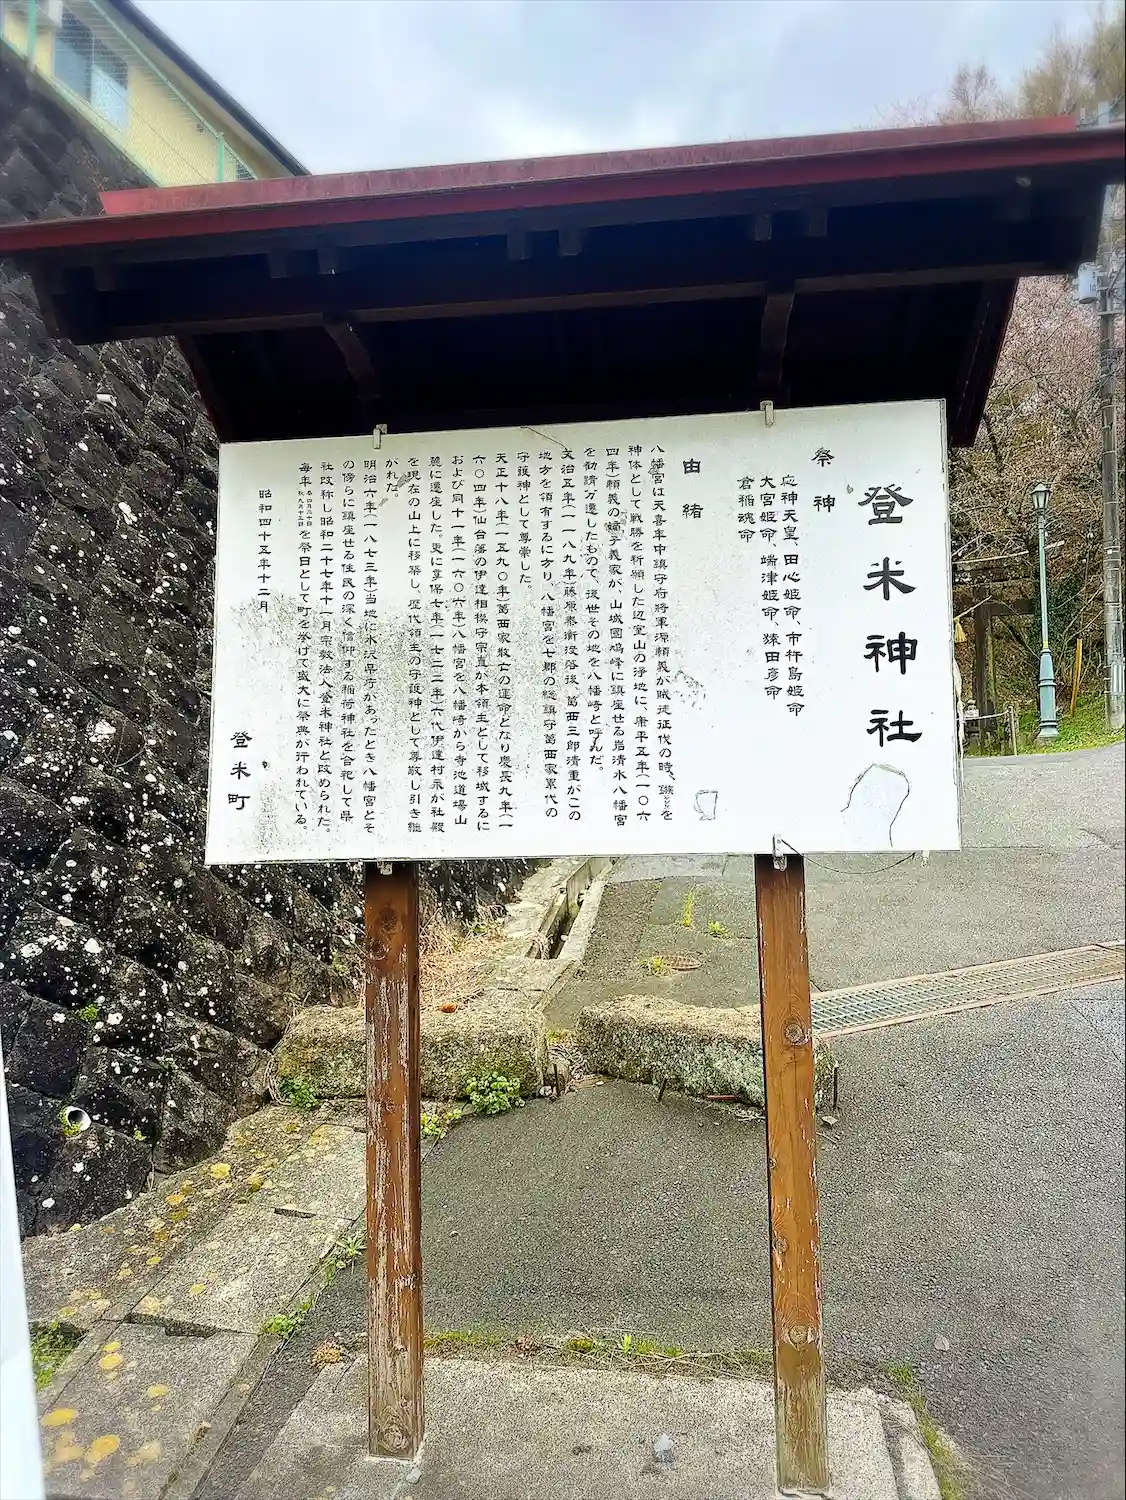 登米神社
祭神
応神天皇、田心姫命、市杵島姫命
大宮姫命、端津姫命、猿田彦命
倉稲魂命
由緒
八幡宮は天喜年中鎮守府将軍源頼義が賊徒征伐の時、鏃を
神体として戦勝を祈願した辺室山の浄地に、康平五年(一〇六
四年)頼義の嫡子義家が、山城國鳩峰に鎮座せる岩清水八幡宮
を勧請万遷したもので、後世その地を八幡崎と呼んだ。
文治五年(一一八九年)藤原泰衡没落後、葛西三郎清重がこの
地方を領有するに方り、八幡宮を七郡の総鎮守葛西家累代の
守護神として尊崇した。
天正十八年(一五九〇年)葛西家敗亡の運命となり慶長九年(一
六〇四年)仙台藩の伊達相模守宗直が本領主として移城するに
および同十一年(一六〇六年)八幡宮を八幡崎から寺池道場山
麓に遷座した。更に享保七年(一七二二年)六代伊達村永が社殿
を現在の山上に移築し、歴代領主の守護神として尊敬し引き継
がれた。
明治六年(一八七三年)当地に水沢県庁があったとき八幡宮とそ
の傍らに鎮座せる住民の深く信仰する稲荷神社を合祀して県
社改称し昭和二十七年十一月宗教法人登米神社と改められた。
毎年 春四月二十日 秋九月十三日 を祭日として町を挙げて盛大に祭典が行われている。
昭和四十五年十二月
登米町